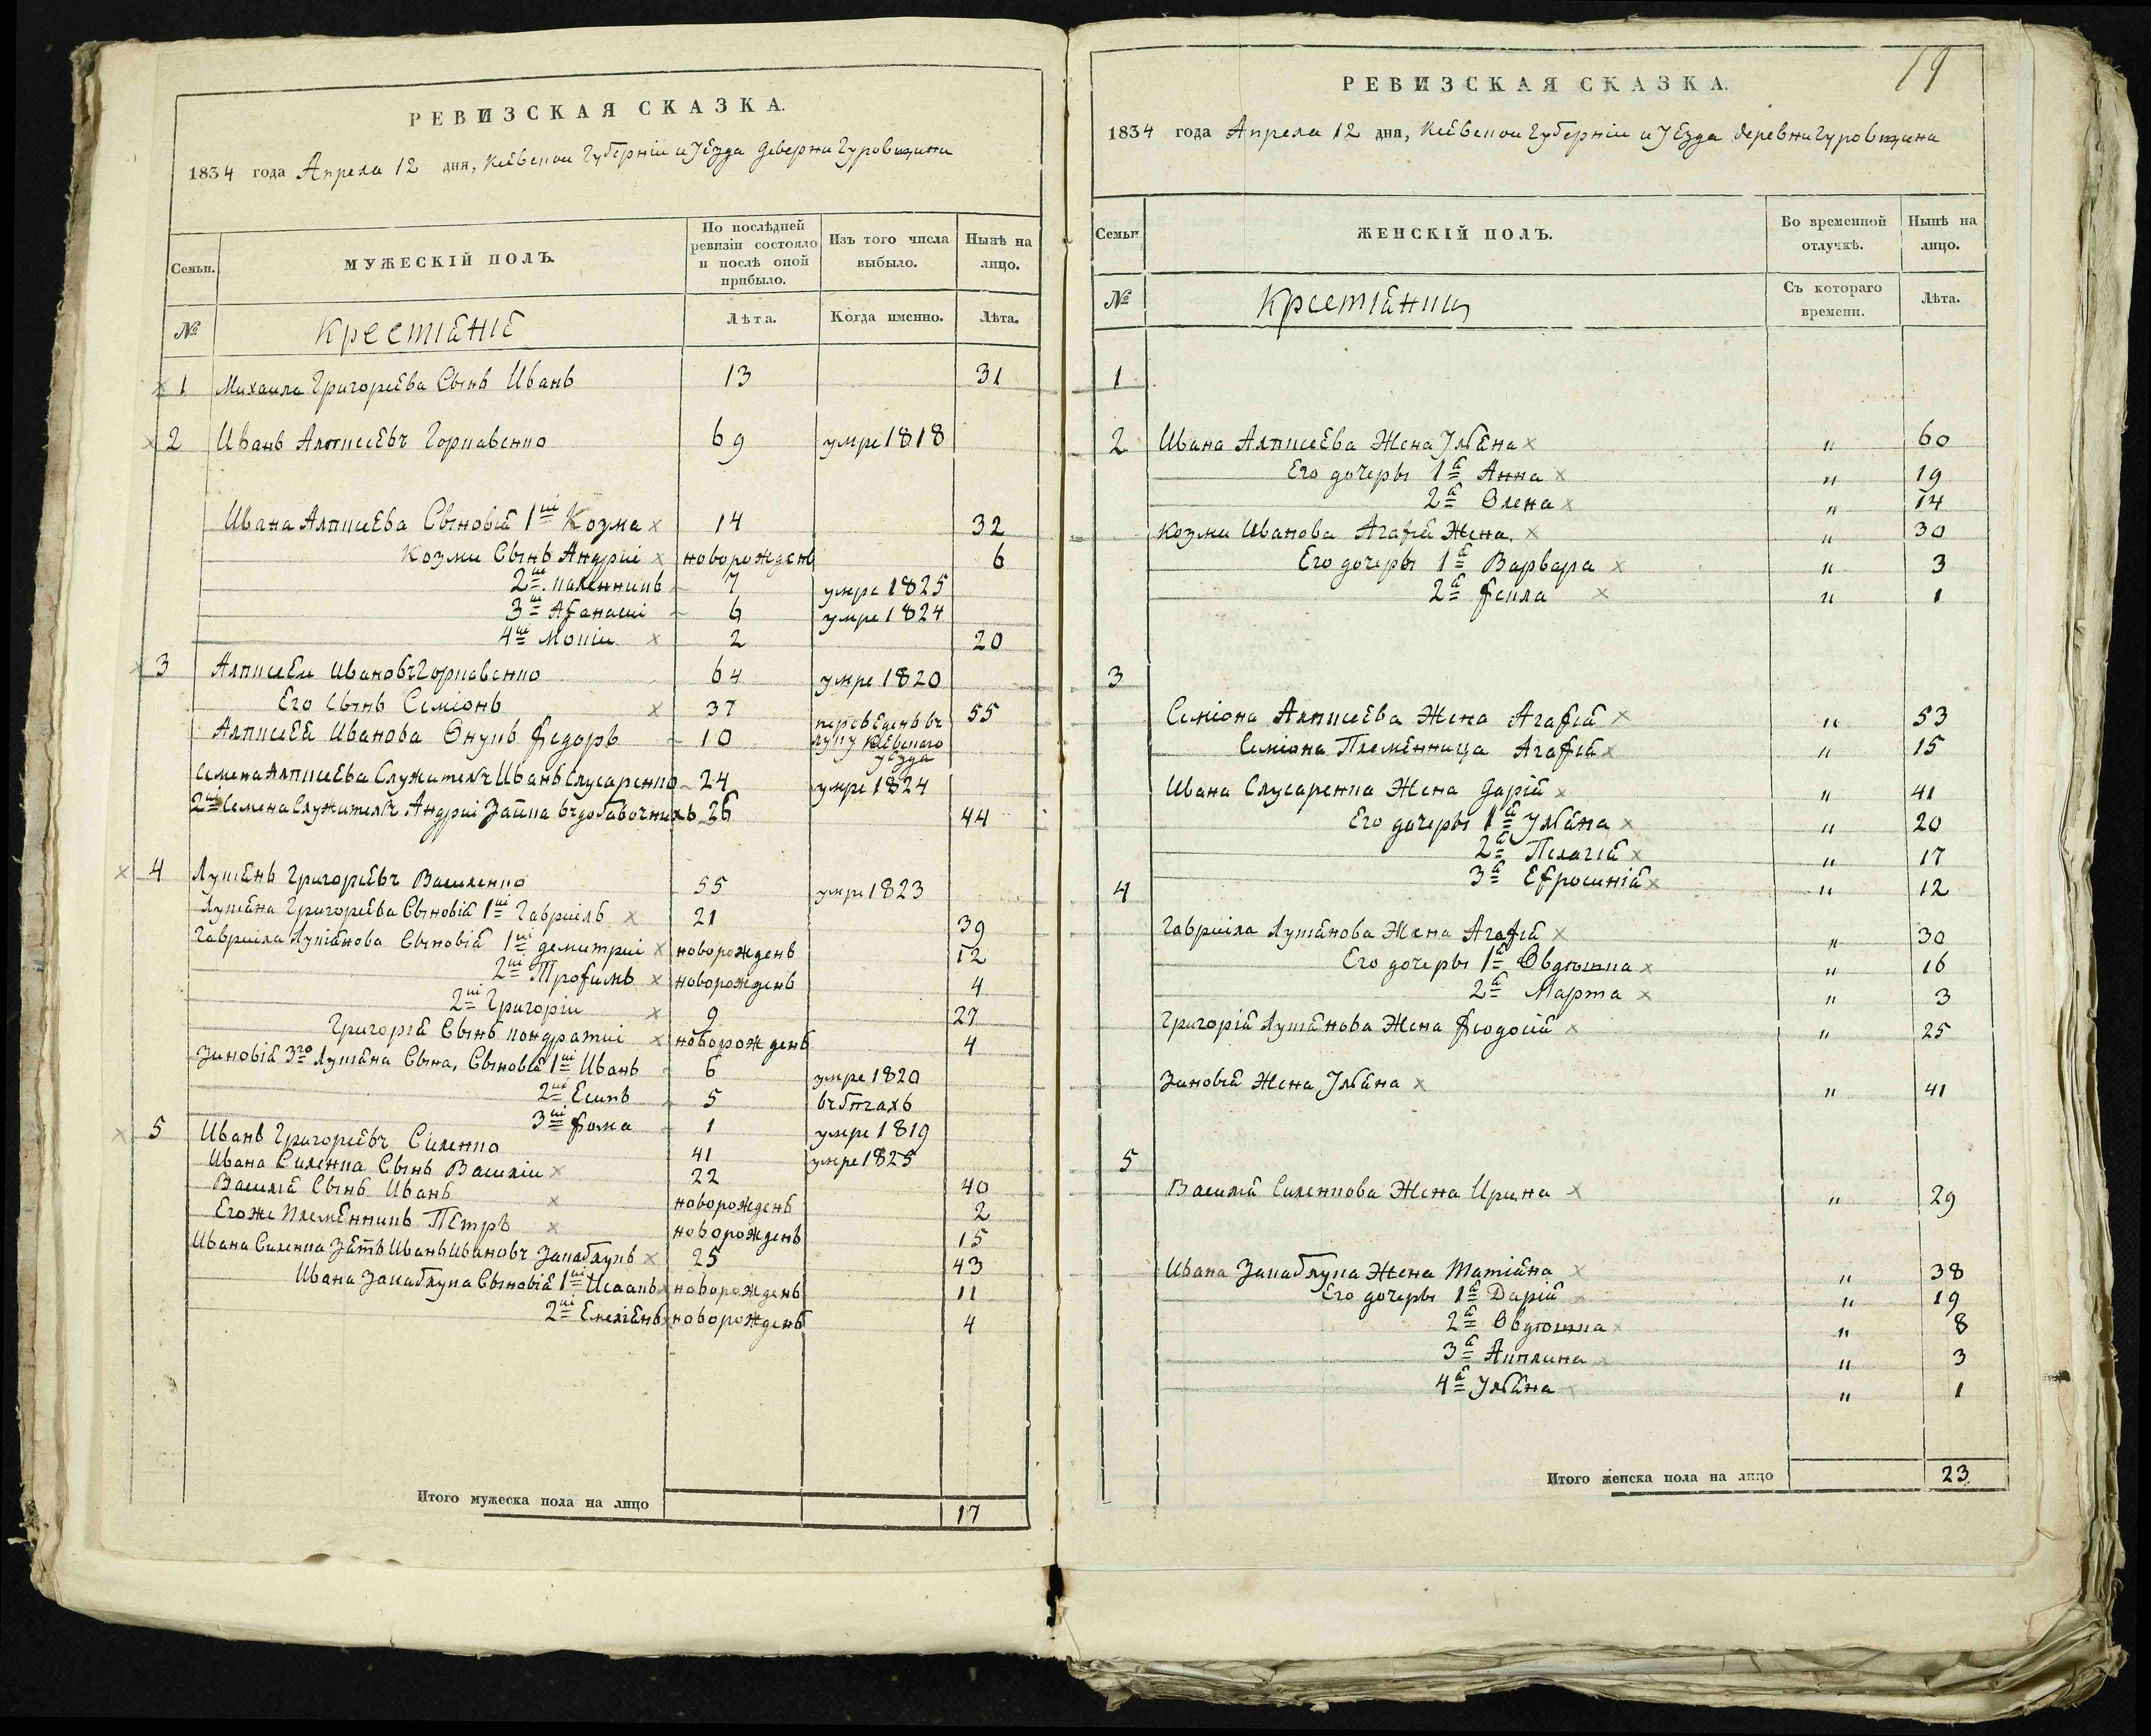 РЕВИЗСКАЯ СКАЗКА.
1834 года Апреля 12 дня, Кіевской Губерніи и Уезда деверни Гуровщини
Семьи.
МУЖЕСКІЙ ПОЛЪ.
По послѣдней ревизіи состояло и послѣ оной прибыло.
Изъ того числа выбыло.
Нынѣ на лицо.
№
Крестіяніе
Лѣта.
Когда именно.
Лѣта.
1 Михаила Григориева Сынъ Иванъ 13 31
2 Иванъ Алексеевъ Горкавенко 69 умре 1818
Ивана Алексиева Сыновія 1й Козма 14 32
Козми Сынъ Андрій новорожденъ 6
2й 7 умре 1825
3й Афанасій 6 умре 1824
4й Мокіи 2 20
3 Алексеи Ивановъ Горкавенко 64 умре 1820
Его Сынъ Семіонъ 37 55
Алексея Иванова Внукъ Федоръ 10 переведенъ въ Кіевскаго уезда
Семена Алексиева Служителъ Иванъ Слусаренко 24 умре 1824
2й Семена Служителъ Андрій Заика въ добавочнихъ 26 44
4 Лукіянъ Григориевъ Василенко 55 умре 1823
Лукіяна Григориева Сыновія 1й Гавриилъ 21 39
Гавриила Лукіянова Сыновія 1й демитрій новорожденъ 12
2й Трофимъ новорожденъ 4
2й Григорій 9 27
Григорія Сынъ кондратій новорожденъ 4
Зиновія 3го Лукіяна Сына, Сыновія 1й Иванъ 6 умре 1820
2й Есипъ 5 въ бегахъ
3й фома 1 умре 1819
5 Иванъ Григориевъ Силенко 41 умре 1825
Ивана Силенка Сынъ Василіи 22 40
Василія Сынъ Иванъ новорожденъ 2
Егоже Племенникъ Петръ новорожденъ 15
Ивана Силенка Зять Иванъ Ивановъ Закаблукъ 25 43
Ивана Закаблука Сыновія 1й Исаакъ новорожденъ 11
2й Емеліянъ новорожденъ 4
Итого мужеска пола на лицо 17
19
РЕВИЗСКАЯ СКАЗКА.
1834 года Апреля 12 дня, Кіевской Губерніи и Уезда деревни Гуровщина
Семьи
ЖЕНСКІЙ ПОЛЪ.
Во временной отлучкѣ.
Нынѣ на лицо.
№
Крестіянки
Съ котораго времени.
Лѣта.
1
2 Ивана Алексиева Жена Уляна " 60
Его дочеры 1я Анна " 19
2я Олена " 14
Козми Иванова Агафія Жена. " 30
Его дочеры 1я Варвара " 3
2я Фекла " 1
3
Семіона Алексиева Жена Агафія " 53
Семіона Племенница Агафія " 15
Ивана Слусаренка Жена Дарія " 41
Его дочеры 1я Уляна " 20
2я Пелагія " 17
3я Ефросинія " 12
4
Гавриила Лукіянова Жена Агафія " 30
Его дочеры 1я Овдотка " 16
2я Марта " 3
Григорія Лукіянова Жена Феодосія " 25
Зиновія Жена Уляна " 41
5
Василія Силенкова Жена Ирина " 29
Ивана Закаблука Жена Татіяна " 38
Его дочеры 1я Дарія " 19
2я Овдотка " 8
3я Акилина " 3
4я Уляна " 1
Итого женска пола на лицо 23